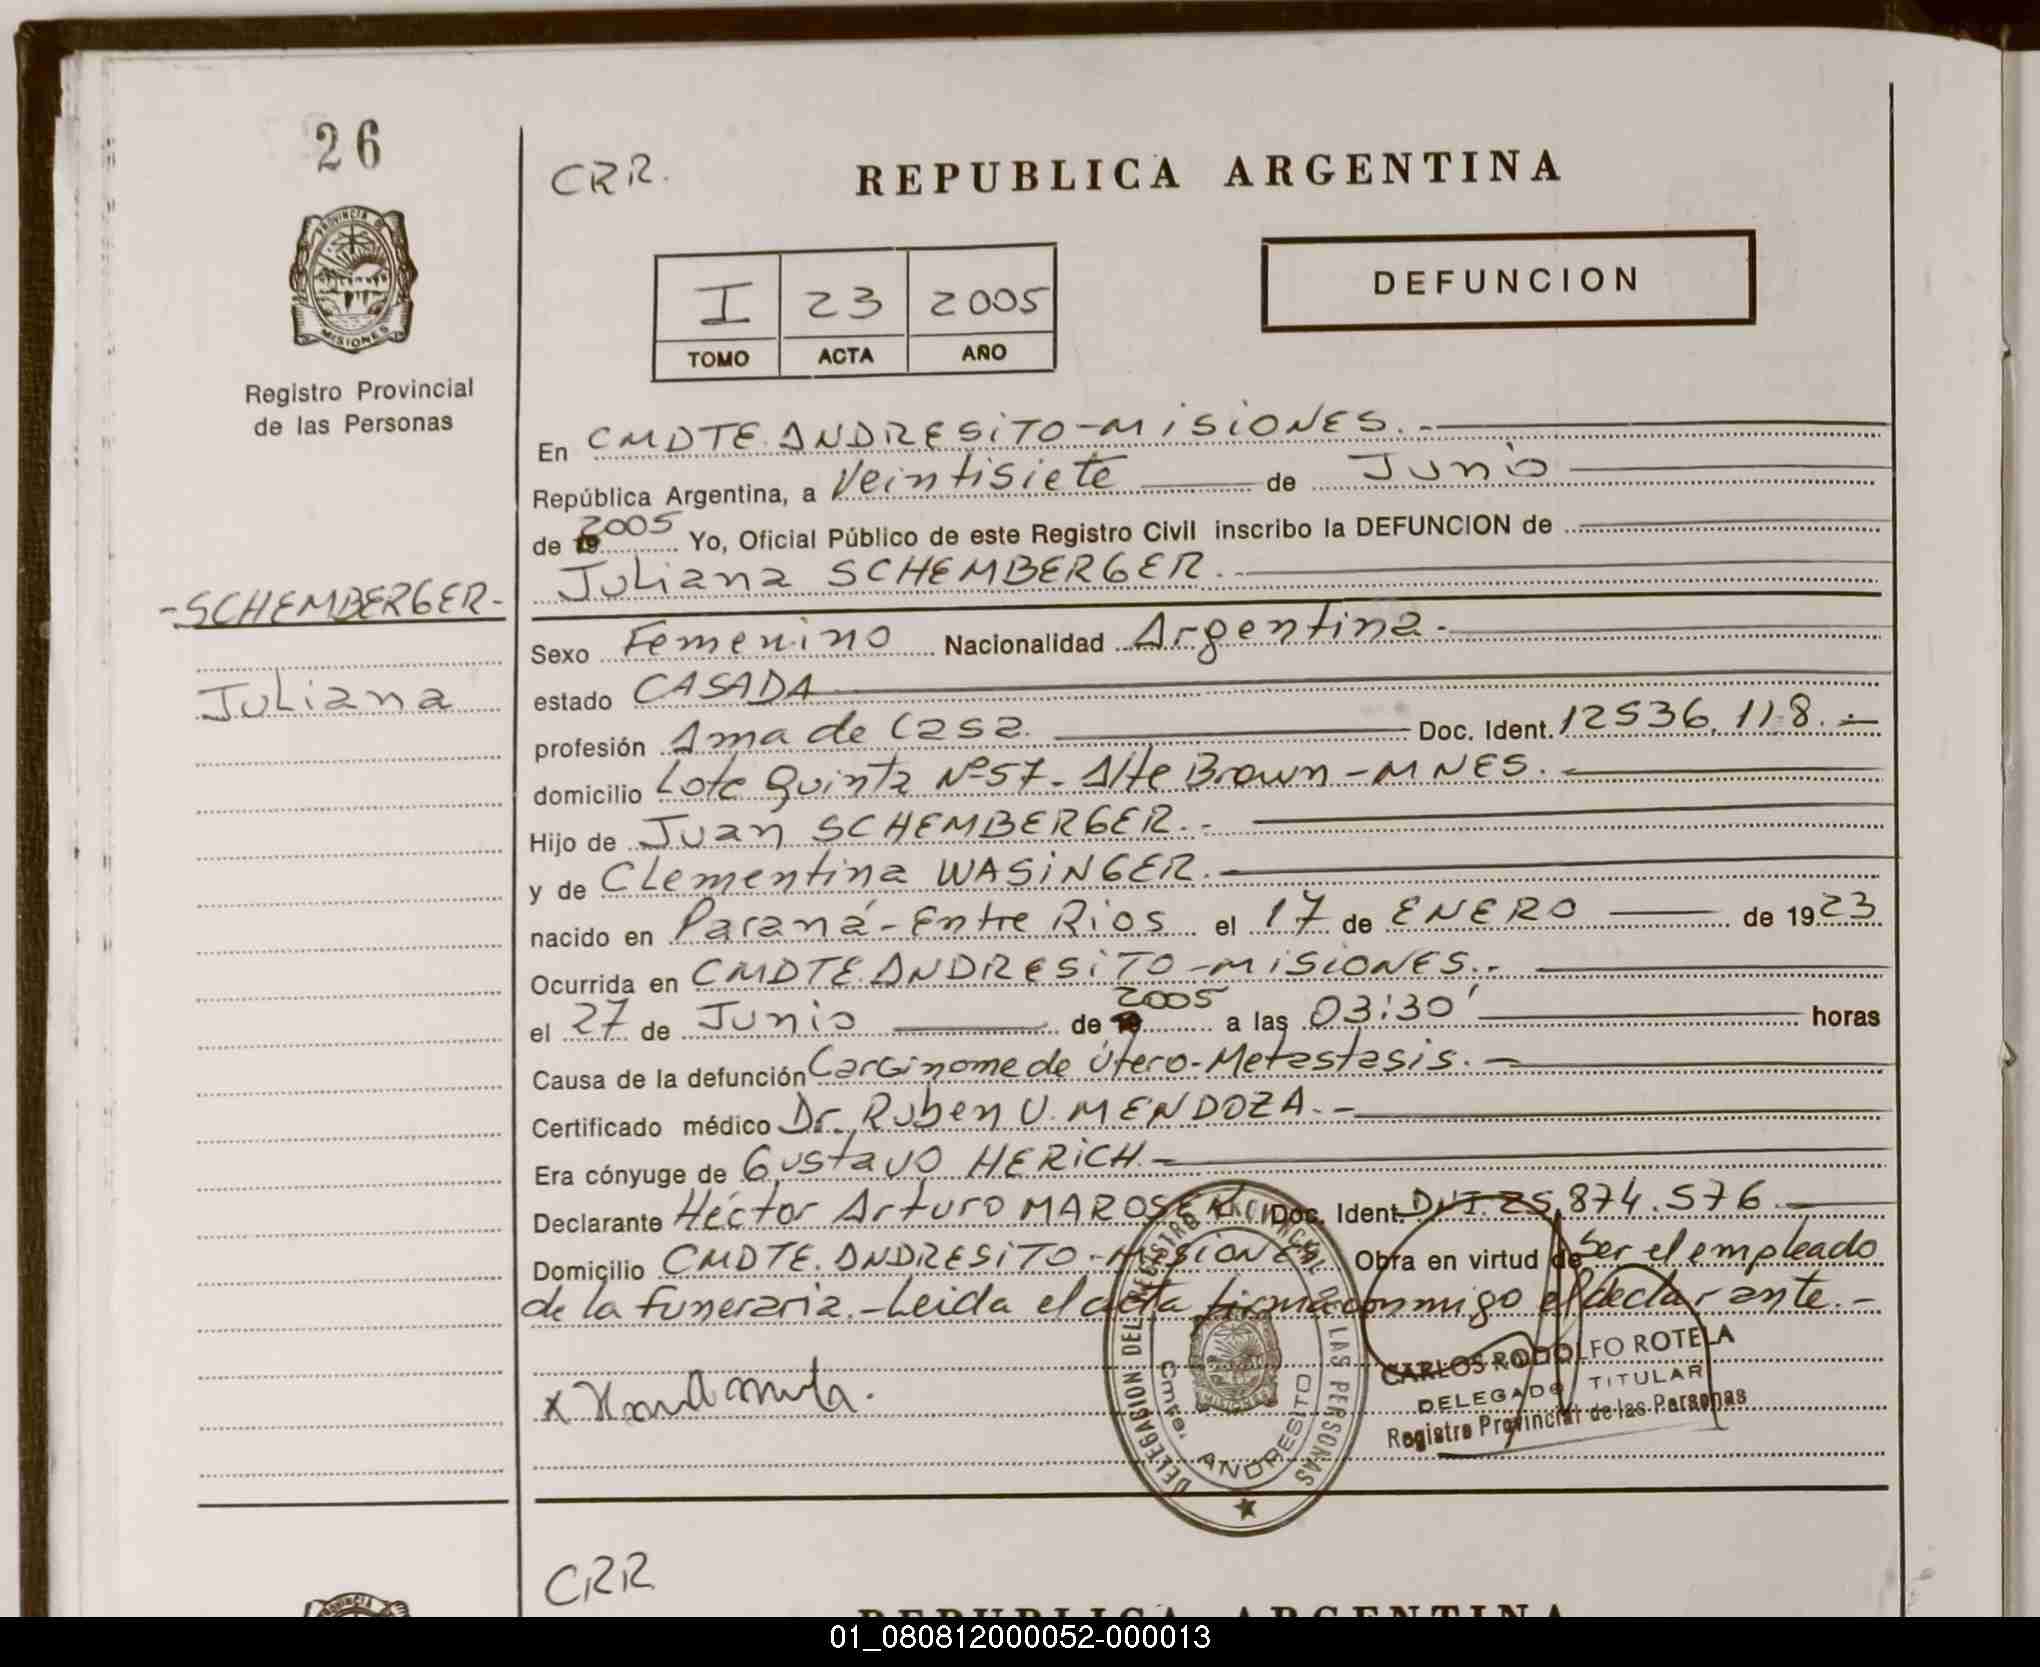 26
CRR.
REPUBLICA ARGENTINA
PROVINCIA DE
MISIONES
Registro Provincial
de las Personas
I 23 2005
TOMO ACTA AÑO
DEFUNCION
En CMDTE. ANDRESiTO-MiSiONES.-
República Argentina, a Veintisiete de Junio
de 19 2005 Yo, Oficial Público de este Registro Civil inscribo la DEFUNCION de
Juliana SCHEMBERGER.-
-SCHEMBERGER-
Juliana
Sexo Femenino Nacionalidad Argentina.-
estado CASADA
profesión Ama de Casa. Doc. Ident. 12536.118.-
domicilio Lote Quinta Nº57- Alte Brown-MNES.-
Hijo de Juan SCHEMBERGER.-
y de Clementina WASiNGER.-
nacido en Paraná-Entre Rios el 17 de ENERO de 1923
Ocurrida en CMDTE. ANDRESiTO-MiSiONES.-
el 27 de Junio de 19 2005 a las 03:30' horas
Causa de la defunción Carcinome de Útero-Metastasis.-
Certificado médico Dr. Ruben U. MENDOZA.-
Era cónyuge de Gustavo HERiCH.-
Declarante Héctor Arturo Doc. Ident. D.N.I. 25.874.576.-
Domicilio CMDTE. ANDRESiTO-MiSiONES Obra en virtud de Ser el empleado
de la funeraria.-Leida el acta firma conmigo el declarante.-
DELEGACION DEL REGISTRO PROVINCIAL DE LAS PERSONAS
Cmte. ANDRESITO
MISIONES
CARLOS RODOLFO ROTELA
DELEGADO TITULAR
Registro Provincial de las Personas
CRR
REPUBLICA ARGENTINA
PROVINCIA
01_080812000052-000013